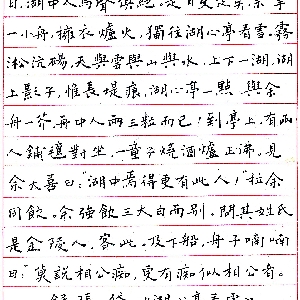 日,湖中人鳥聲俱絕。是日更定矣,余拏
一小舟,擁衣爐火,獨往湖心亭看雪。霧
淞沆碭,天與雲與山與水,上下一湖,湖
上影子,惟長堤痕,湖心亭一點,與余
舟一芥,舟中人兩三粒而已!到亭上,有兩
人鋪氈對坐,一童子燒酒爐正沸。見
余大喜曰:「湖中焉得更有此人!」拉余
同飲。余強飲三大白而別。問其姓氏
是金陵人,客此。及下船,舟子喃喃
曰:「莫說相公痴,更有痴似相公者。
張 《湖心亭